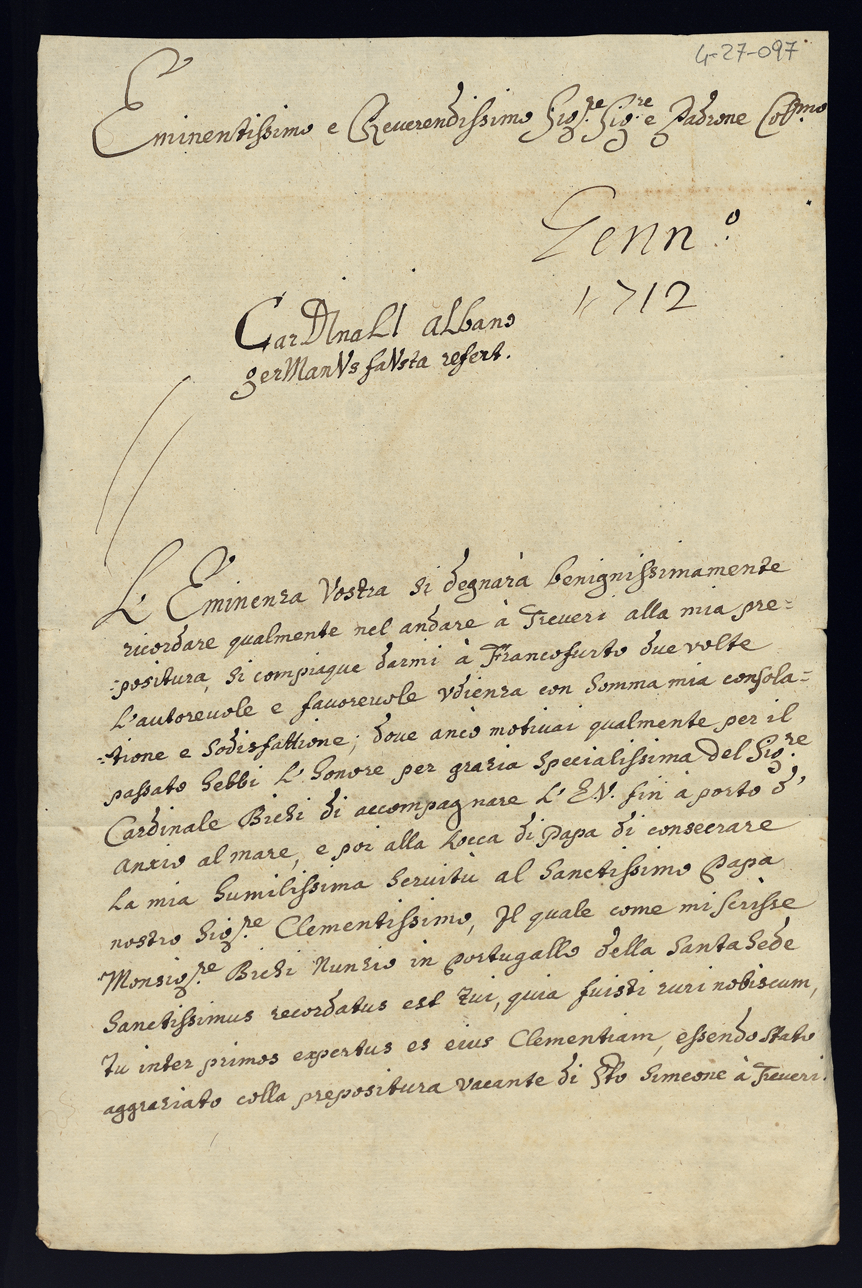 4-27-097
Eminentissimo e Reverendissimo Sig.re Sig.re e Padrone Col.mo
Genn.o
1712
CarDInaLI aLbano
gerManVs faVsta refert.
L'Eminenza Vostra si degnarà benignissimamente
ricordare qualmente nel andare à Treveri alla mia pre=
=positura, si compiaque darmi à Francofurto due volte
l'autorevole e favorevole Vdienza con somma mia consola=
=tione e sodisfattione; dove anco motivai qualmente per il
passato hebbi l'honore per grazia specialissima del Sig.re
Cardinale Bichi di accompagnare l'E.V. fin à porto d'
Anzio al mare, e poi alla Rocca di Papa di consecrare
la mia humilissima servitù al Sanctissimo Papa
nostro Sig.re Clementissimo, Il quale come mi scrisse
Monsig.re Bichi Nunzio in Portugallo della Santa Sede
Sanctissimus recordatus est tui, quia fuisti ruri nobiscum,
tu inter primos expertus es eius Clementiam, essendo stato
aggraziato colla prepositura vacante di Sto Simeone à Treveri.